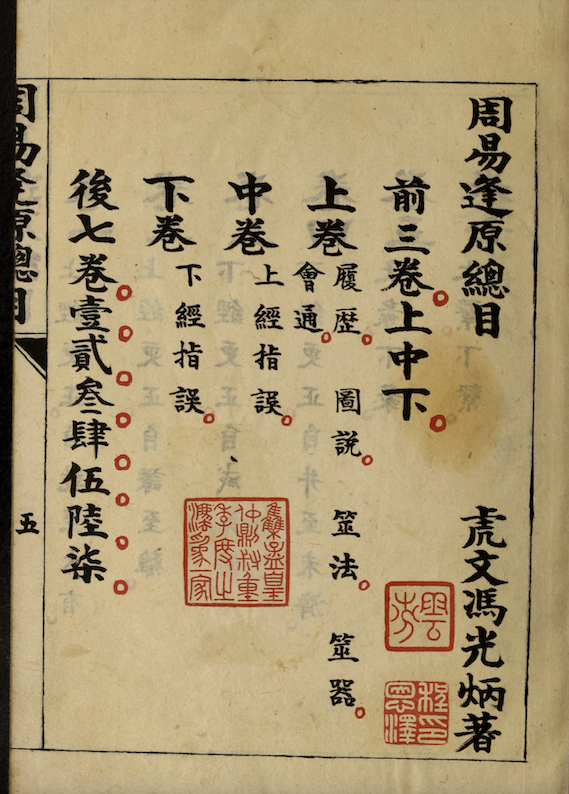 周易逢原總目 虎文馮光炳著
前三卷上中下
上卷 履歴 圖說 筮法 筮器
會通
中卷 上經指誤
下卷 下經指誤
後七卷壹貳叁肆伍陸柒
周易逢原總目 五
程印恩澤